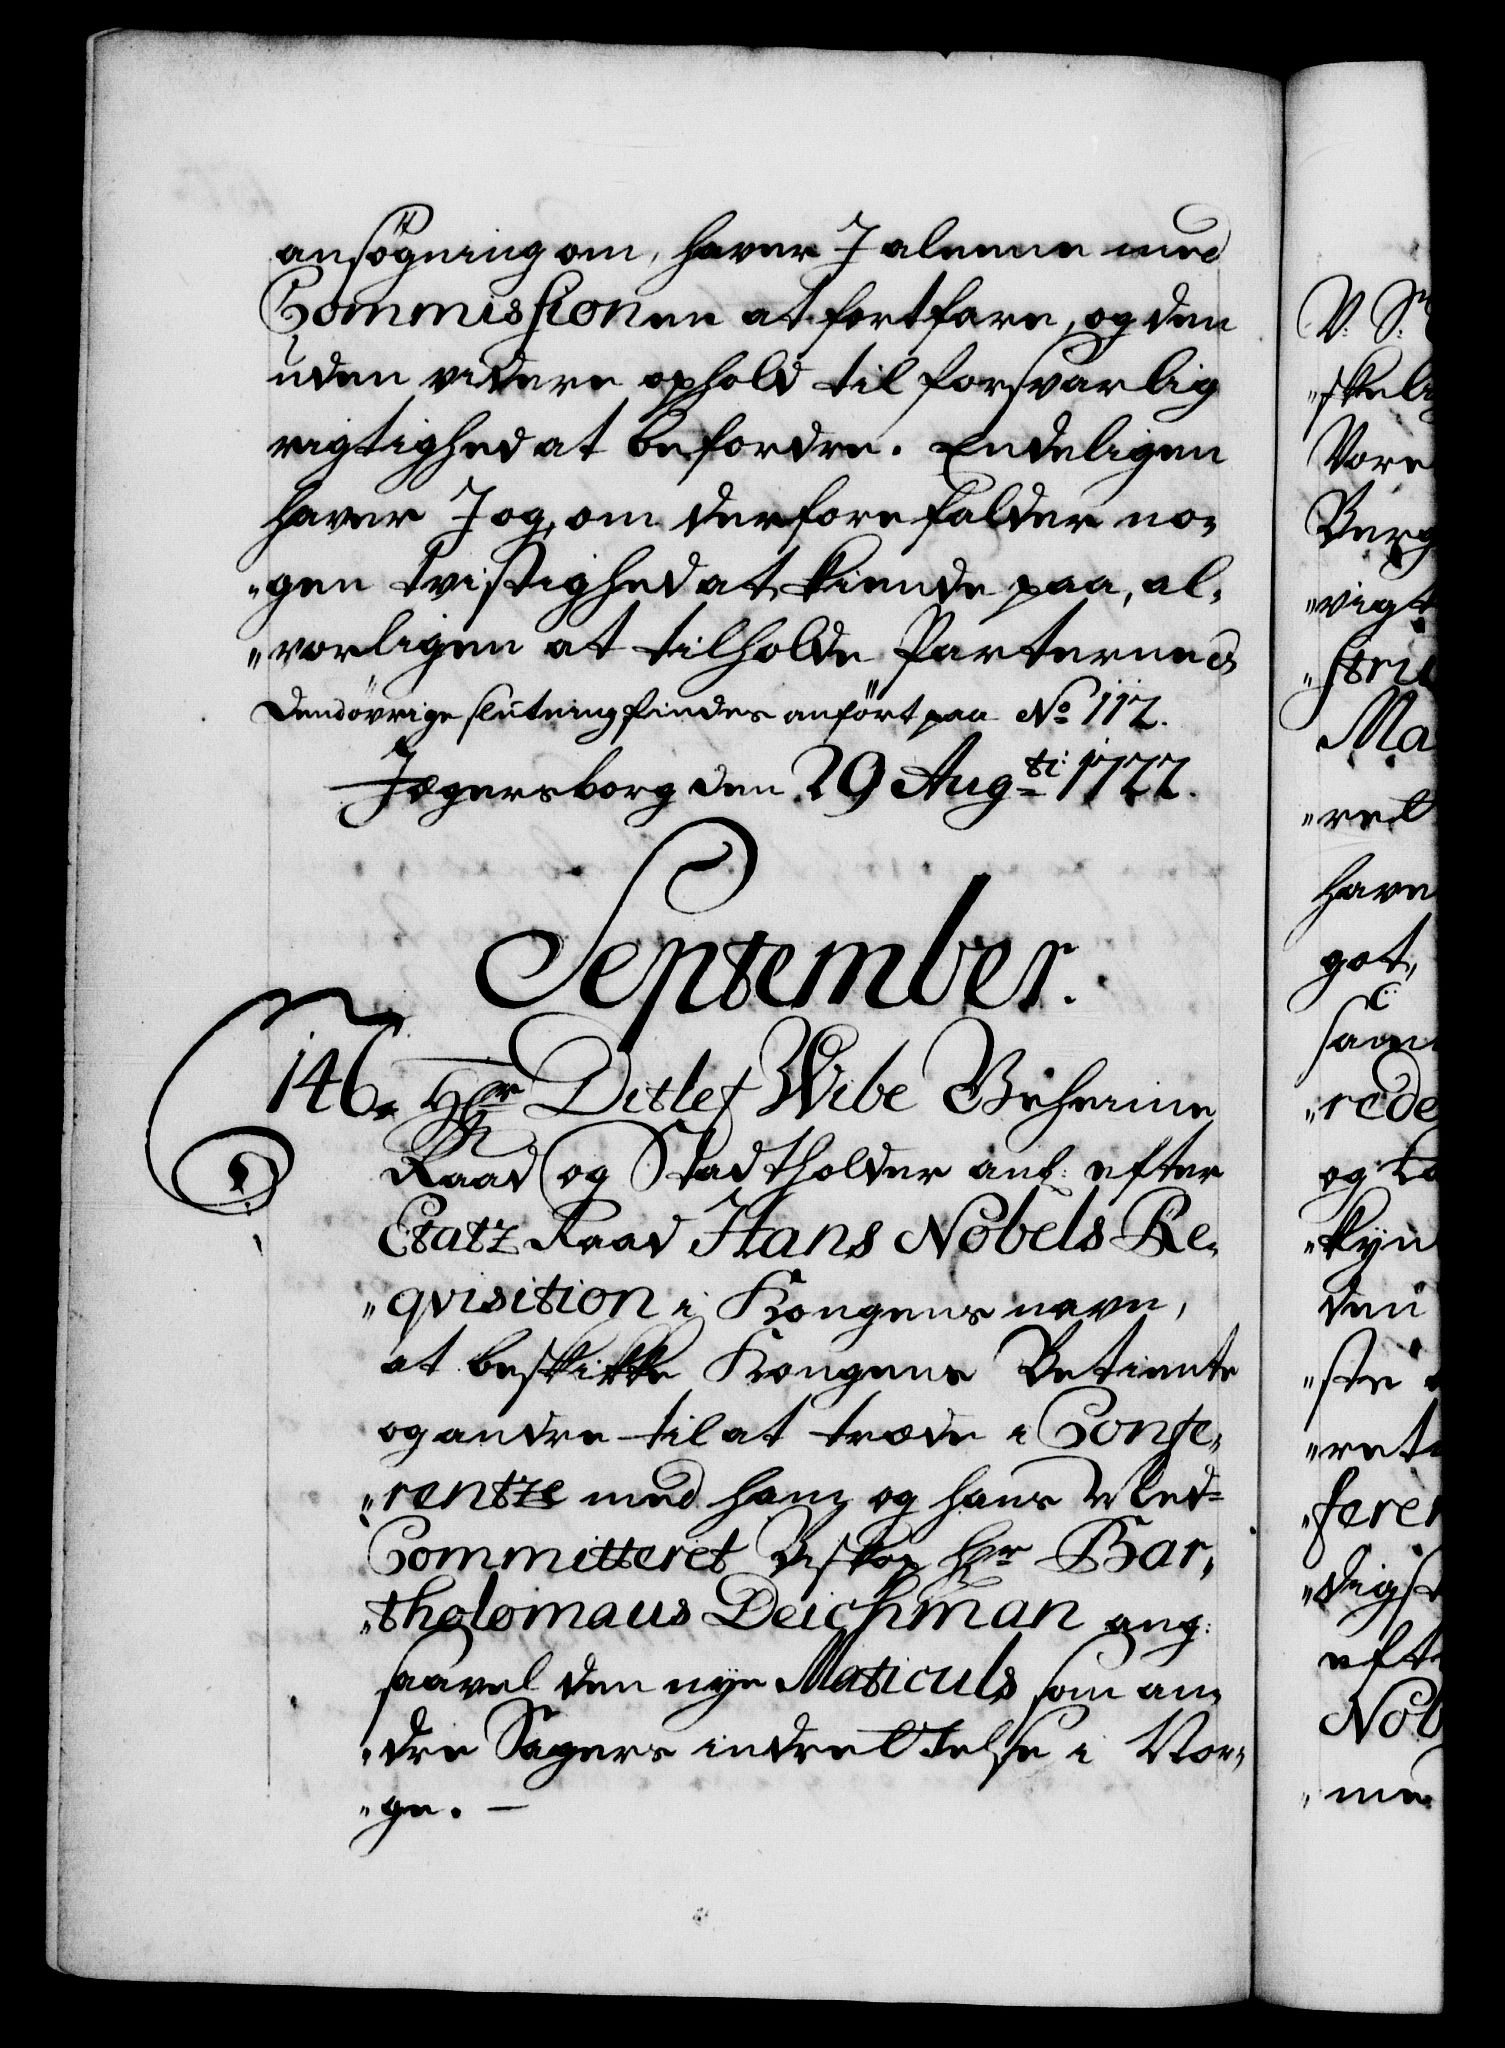 ansögning om, haver I aleene med
Commissionen at fortfare, og den
uden videre ophold til forsvarlig
rigtighed at befordre. Endeligen
haver I og, om derfore falder no-
"gen tvistighed at kiende paa, al-
"vorligen at tilholde Parterne &
Dend övrige slutning findes anfört paa No 112.
Jægersborg den 29 Aug=ti: 1722.
September.
146. Hr Ditlef Wibe Geheime
Raad og Stadtholder anb: efter
Etatz Raad Hans Nobels Re-
"qvisition i Kongens navn,
at beskikke Kongens Betiente
og andre til at træde i Confe-
"rentze med ham og hans Med-
Committeret Biskop Hr Bar-
"tholomæus Deichman ang:
saavel den nye Maticuls som an-
"dre Sagers indrettelse i Nor-
"ge. —
V: S:
"skeli
Vore
Berg
"vigt
"stru
Ma
"ret
have
got,
saa
"rede
og
"kyn
den
"ste
"ret
"feren
"digst
efte
Nob
"me